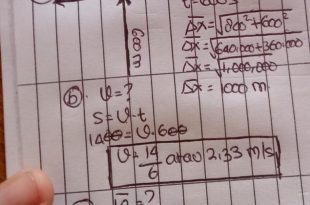 Δx = √800² + 600²
Δx = √640.000 + 360.000
Δx = √1.000.000
Δx = 1000 m
b. v = ?
s = v · t
1400 = v · 600
v = 14/6 atau 2,33 m/s